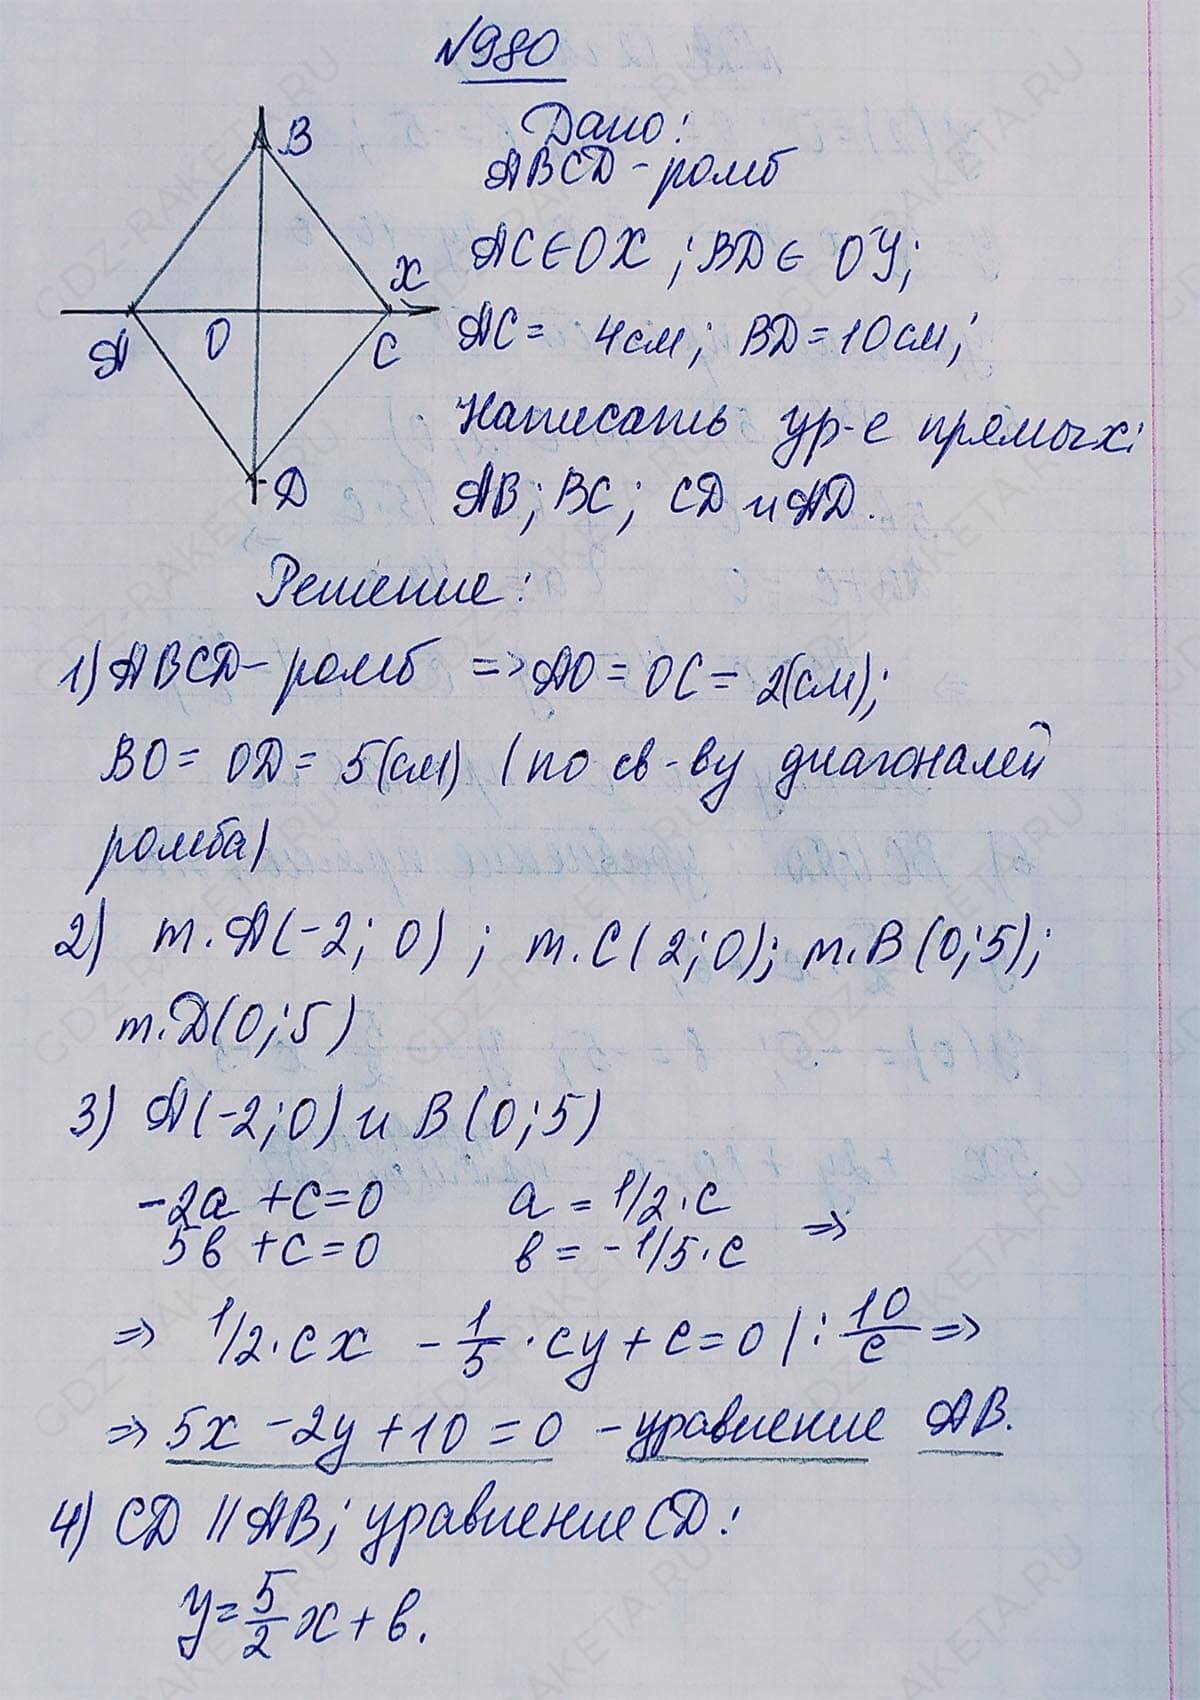 №980
Дано:
ABCD - ромб
B
AC ∈ OX ; BD ∈ OY;
X
A O C
AC = 4см; BD = 10см;
Написать ур-е прямых:
D
AB; BC; CD и AD.
Решение:
1) ABCD - ромб => AO = OC = 2(см);
BO = OD = 5(см) (по св-ву диагоналей
ромба)
2) т. A(-2; 0) ; т. C(2; 0); т. B(0; 5);
т. D(0; 5)
3) A(-2; 0) и B(0; 5)
-2a + c = 0 a = 1/2 · c
5в + c = 0 в = -1/5 · c =>
=> 1/2 · cx - 1/5 · cy + c = 0 | : 10/c =>
=> 5x - 2y + 10 = 0 - уравнение AB.
4) CD || AB; уравнение CD:
y = 5/2 x + в.
GDZ-RAKETA.RU